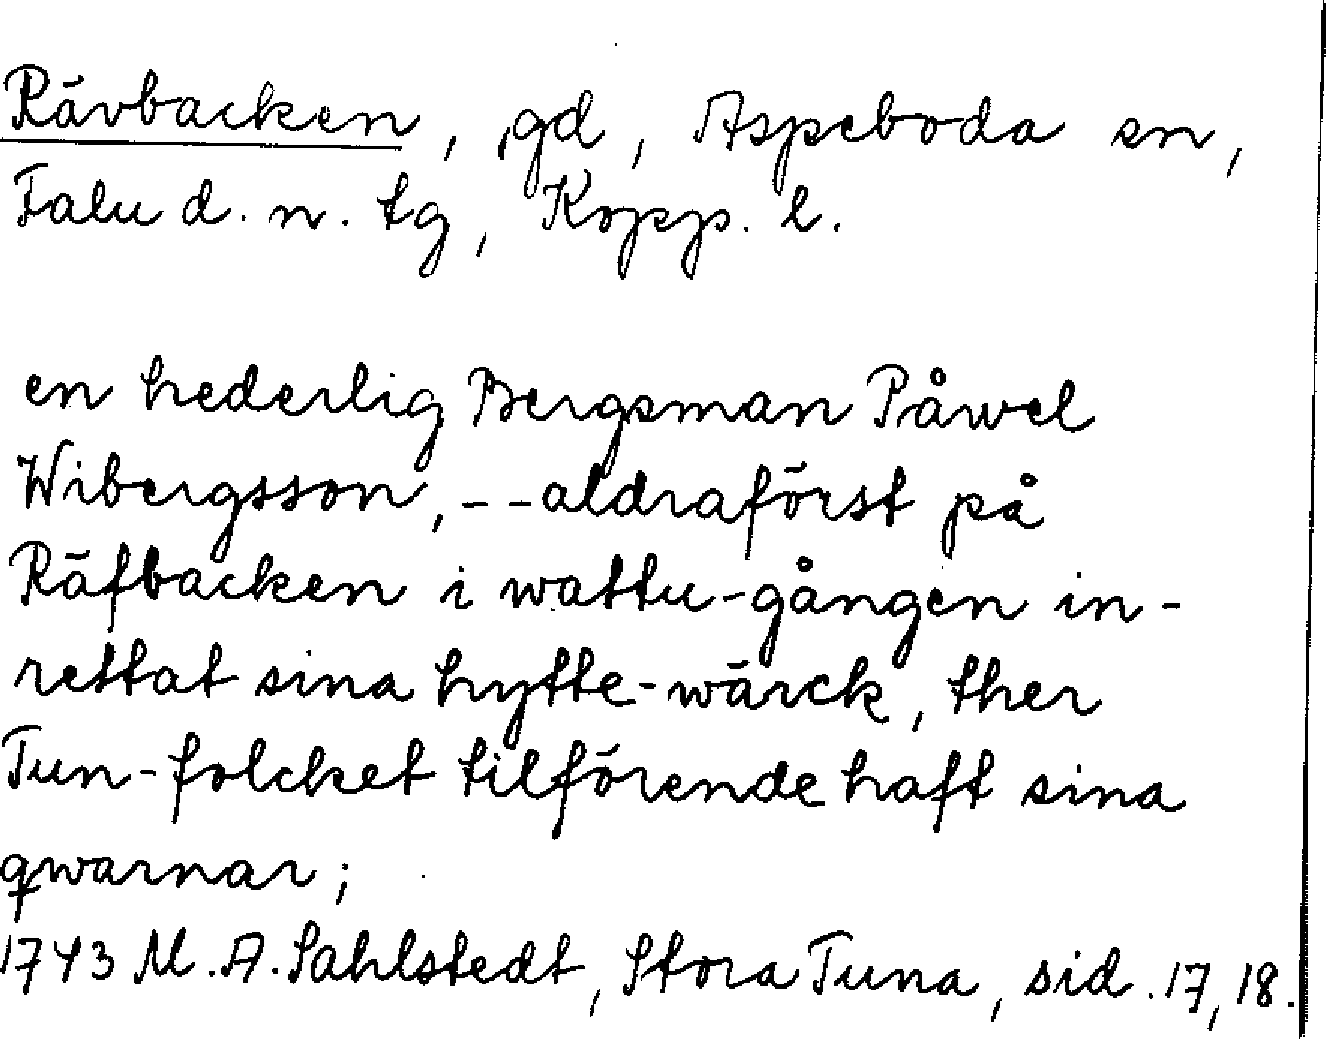 Rävbacken, gd, Aspeboda sn,
Falu d. n. tg, Kopp. l.
en hederlig Bergsman Påwel
Wibergsson, -- aldraförst på
Räfbacken i wattu-gången in-
rettat sina hytte-wärck, ther
Tun-folcket tilförende haft sina
qwarnar;
1743 M. A. Sahlstedt, Stora Tuna, sid. 17, 18.